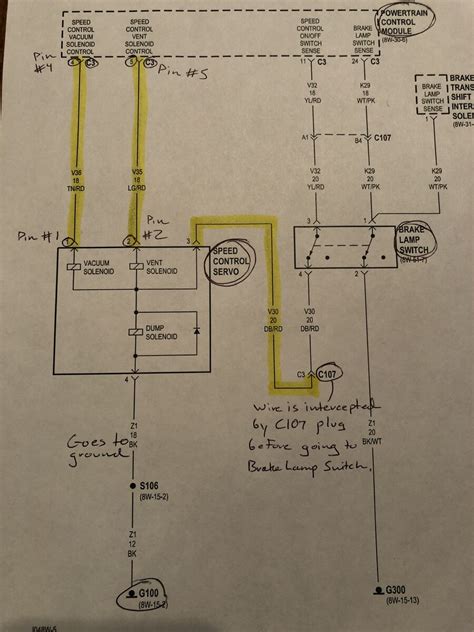 SPEED CONTROL VACUUM SOLENOID CONTROL
SPEED CONTROL VENT SOLENOID CONTROL
SPEED CONTROL ON/OFF SWITCH SENSE
BRAKE LAMP SWITCH SENSE
POWERTRAIN CONTROL MODULE
(8W-30-6)
Pin #4
4 C3
5 C3
Pin #5
11 C3
24 C3
BRAKE LAMP SWITCH SENSE
BRAKE
TRANS
SHIFT
INTER
SOLE
(8W-31-
1
V36 18 TN/RD
V35 18 LG/RD
V32 18 YL/RD
K29 18 WT/PK
A1
B4 C107
V32 20 YL/RD
K29 20 WT/PK
K29 20 WT/PK
Pin #1
1
Pin #2
2
3
3
1
SPEED CONTROL SERVO
BRAKE LAMP SWITCH
(8W-51-7)
VACUUM SOLENOID
VENT SOLENOID
DUMP SOLENOID
4
2
V30 20 DB/RD
V30 20 DB/RD
4
C3 C107
Wire is intercepted
by C107 plug
before going to
Brake Lamp Switch.
Goes to
ground
Z1 18 BK
Z1 20 BK/WT
S106
(8W-15-2)
Z1 12 BK
G100
(8W-15-2)
G300
(8W-15-13)